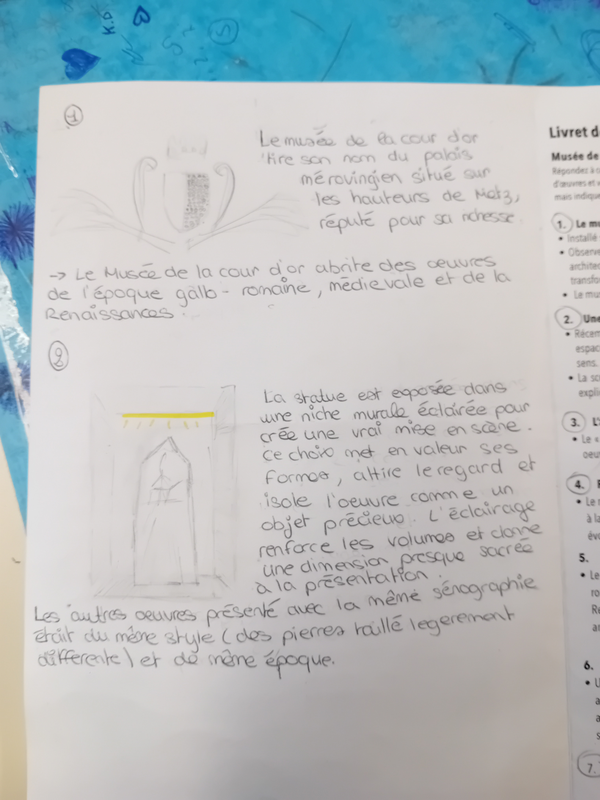 1
Le musée de la cour d'or
tire son nom du palais
mérovingien situé sur
les hauteurs de Metz,
réputé pour sa richesse
→ Le Musée de la cour d'or abrite des oeuvres
de l'époque galb-romaine, médievale et de la
Renaissances.
2
La statue est exposée dans
une niche murale éclairée pour
crée une vrai mise en scène.
Ce choix met en valeur ses
formes, attire le regard et
isole l'oeuvre comme un
objet précieux. L'éclairage
renforce les volumes et donne
une dimension presque sacrée
à la présentation.
Les autres oeuvres présenté avec la même sénographie
était du même style (des pierres taillé legerement
differente) et de même époque.
Livret d
Musée de
Répondez à
d'œuvres et
mais indique
1. Le m
• Installé
• Observe
archite
transfo
• Le mu
2. Une
• Récem
espac
sens.
• La sc
expli
3. L'
• Le «
oeu
4.
• Le
à la
évo
5.
• Le
ro
R
a
6.
• U
a
a
s
7.